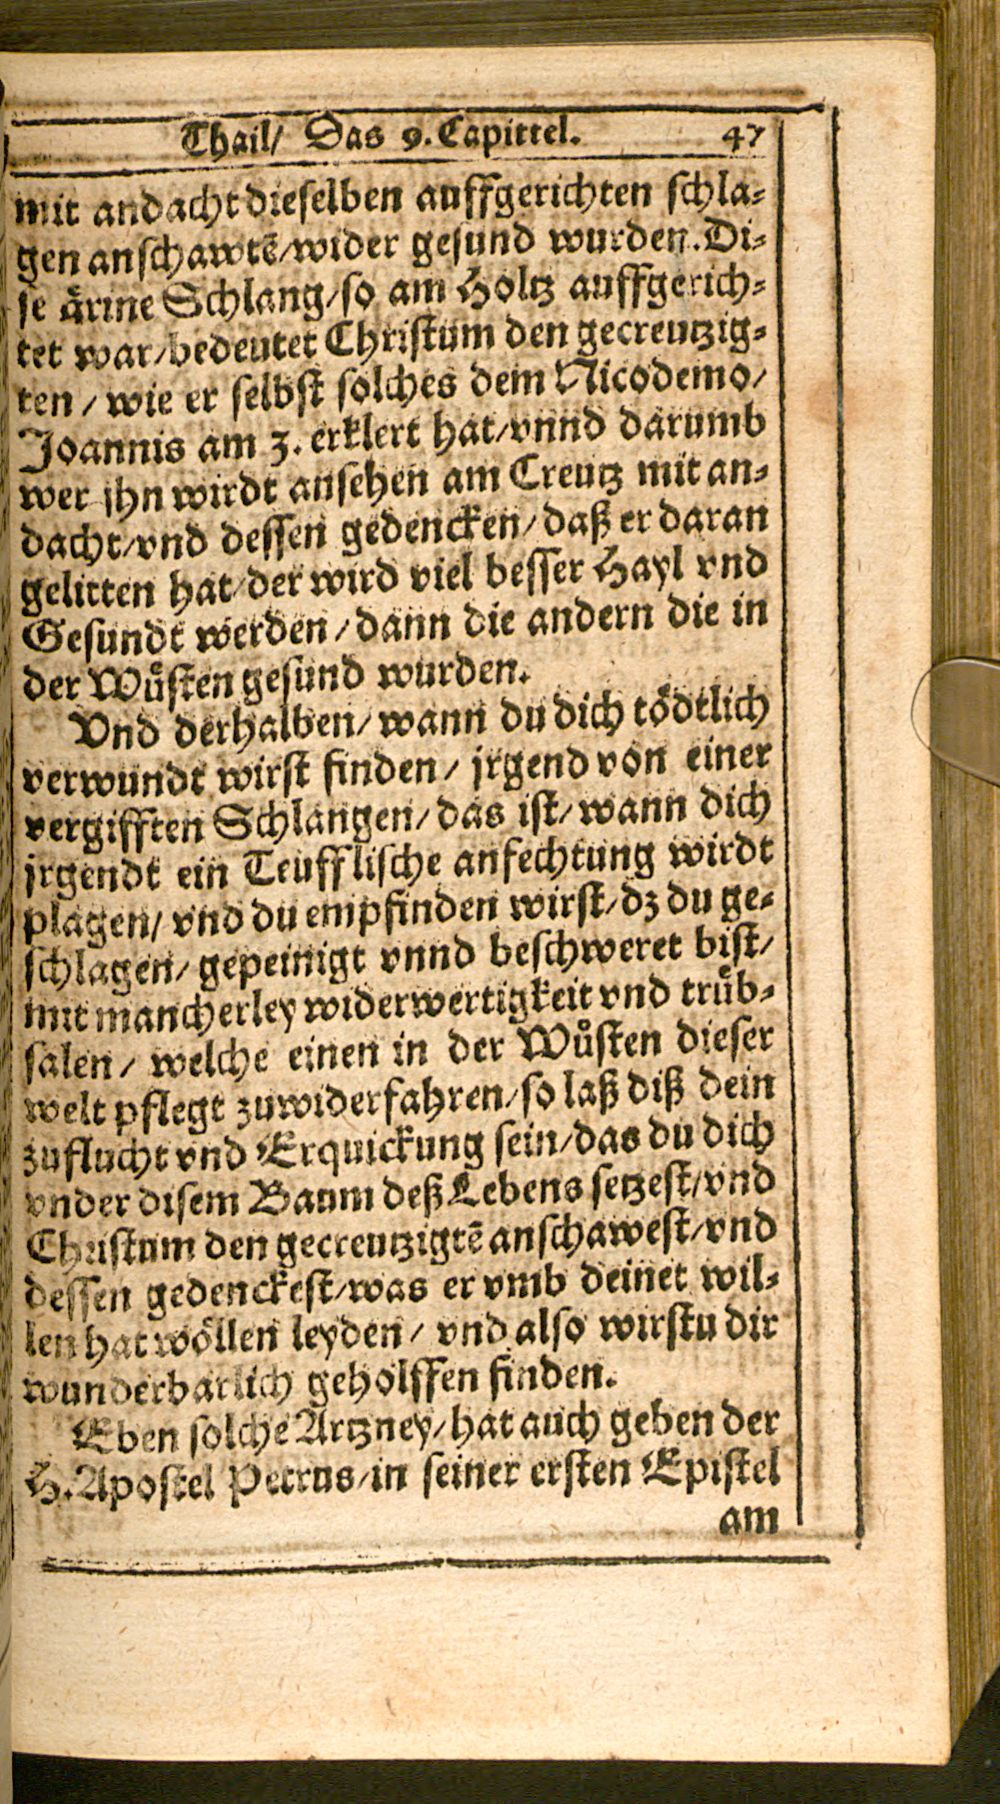 Thail/ Das 9. Capittel. 47
mit andacht dieselben auffgerichten schla⸗
gen anschawtẽ/wider gesund wurden. Di⸗
se ärine Schlang/so am Holtz auffgerich⸗
tet war/bedeutet Christum den gecreutzig⸗
ten/ wie er selbst solches dem Nicodemo/
Joannis am 3. erklert hat/vnnd darumb
wer jhn wirdt ansehen am Creutz mit an⸗
dacht/vnd dessen gedencken/daß er daran
gelitten hat/der wird viel besser Hayl vnd
Gesundt werden/dann die andern die in
der Wuͤsten gesund wurden.
Vnd derhalben/wann du dich toͤdtlich
verwundt wirst finden/ jrgend von einer
vergifften Schlangen/das ist/wann dich
jrgendt ein Teufflische anfechtung wirdt
plagen/ vnd du empfinden wirst/dz du ge⸗
schlagen/ gepeinigt vnnd beschweret bist/
mit mancherley widerwertigkeit vnd truͤb⸗
salen/ welche einen in der Wuͤsten dieser
welt pflegt zuwiderfahren/so laß diß dein
zuflucht vnd Erquickung sein/das du dich
vnder disem Baum deß Lebens setzest/vnd
Christum den gecreutzigtẽ anschawest/vnd
dessen gedenckest/was er vmb deinet wil⸗
len hat woͤllen leyden/ vnd also wirstu dir
wunderbarlich geholffen finden.
Eben solche Artzney/hat auch geben der
H. Apostel Petrus/in seiner ersten Epistel
am